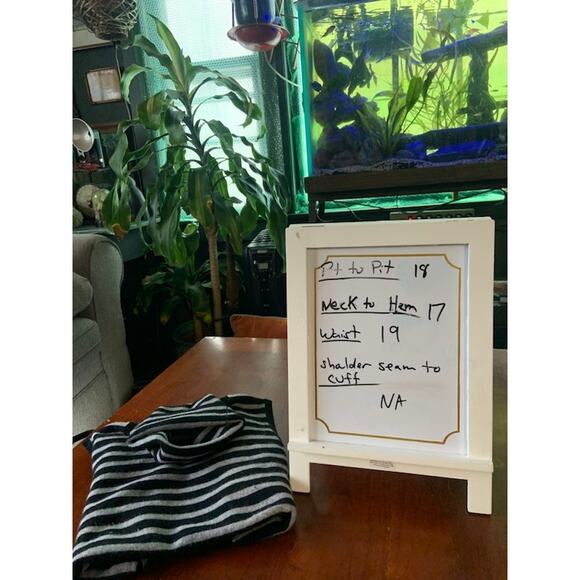 Pit to Pit 18
Neck to Hem 17
Waist 19
shalder seam to
cuff
NA